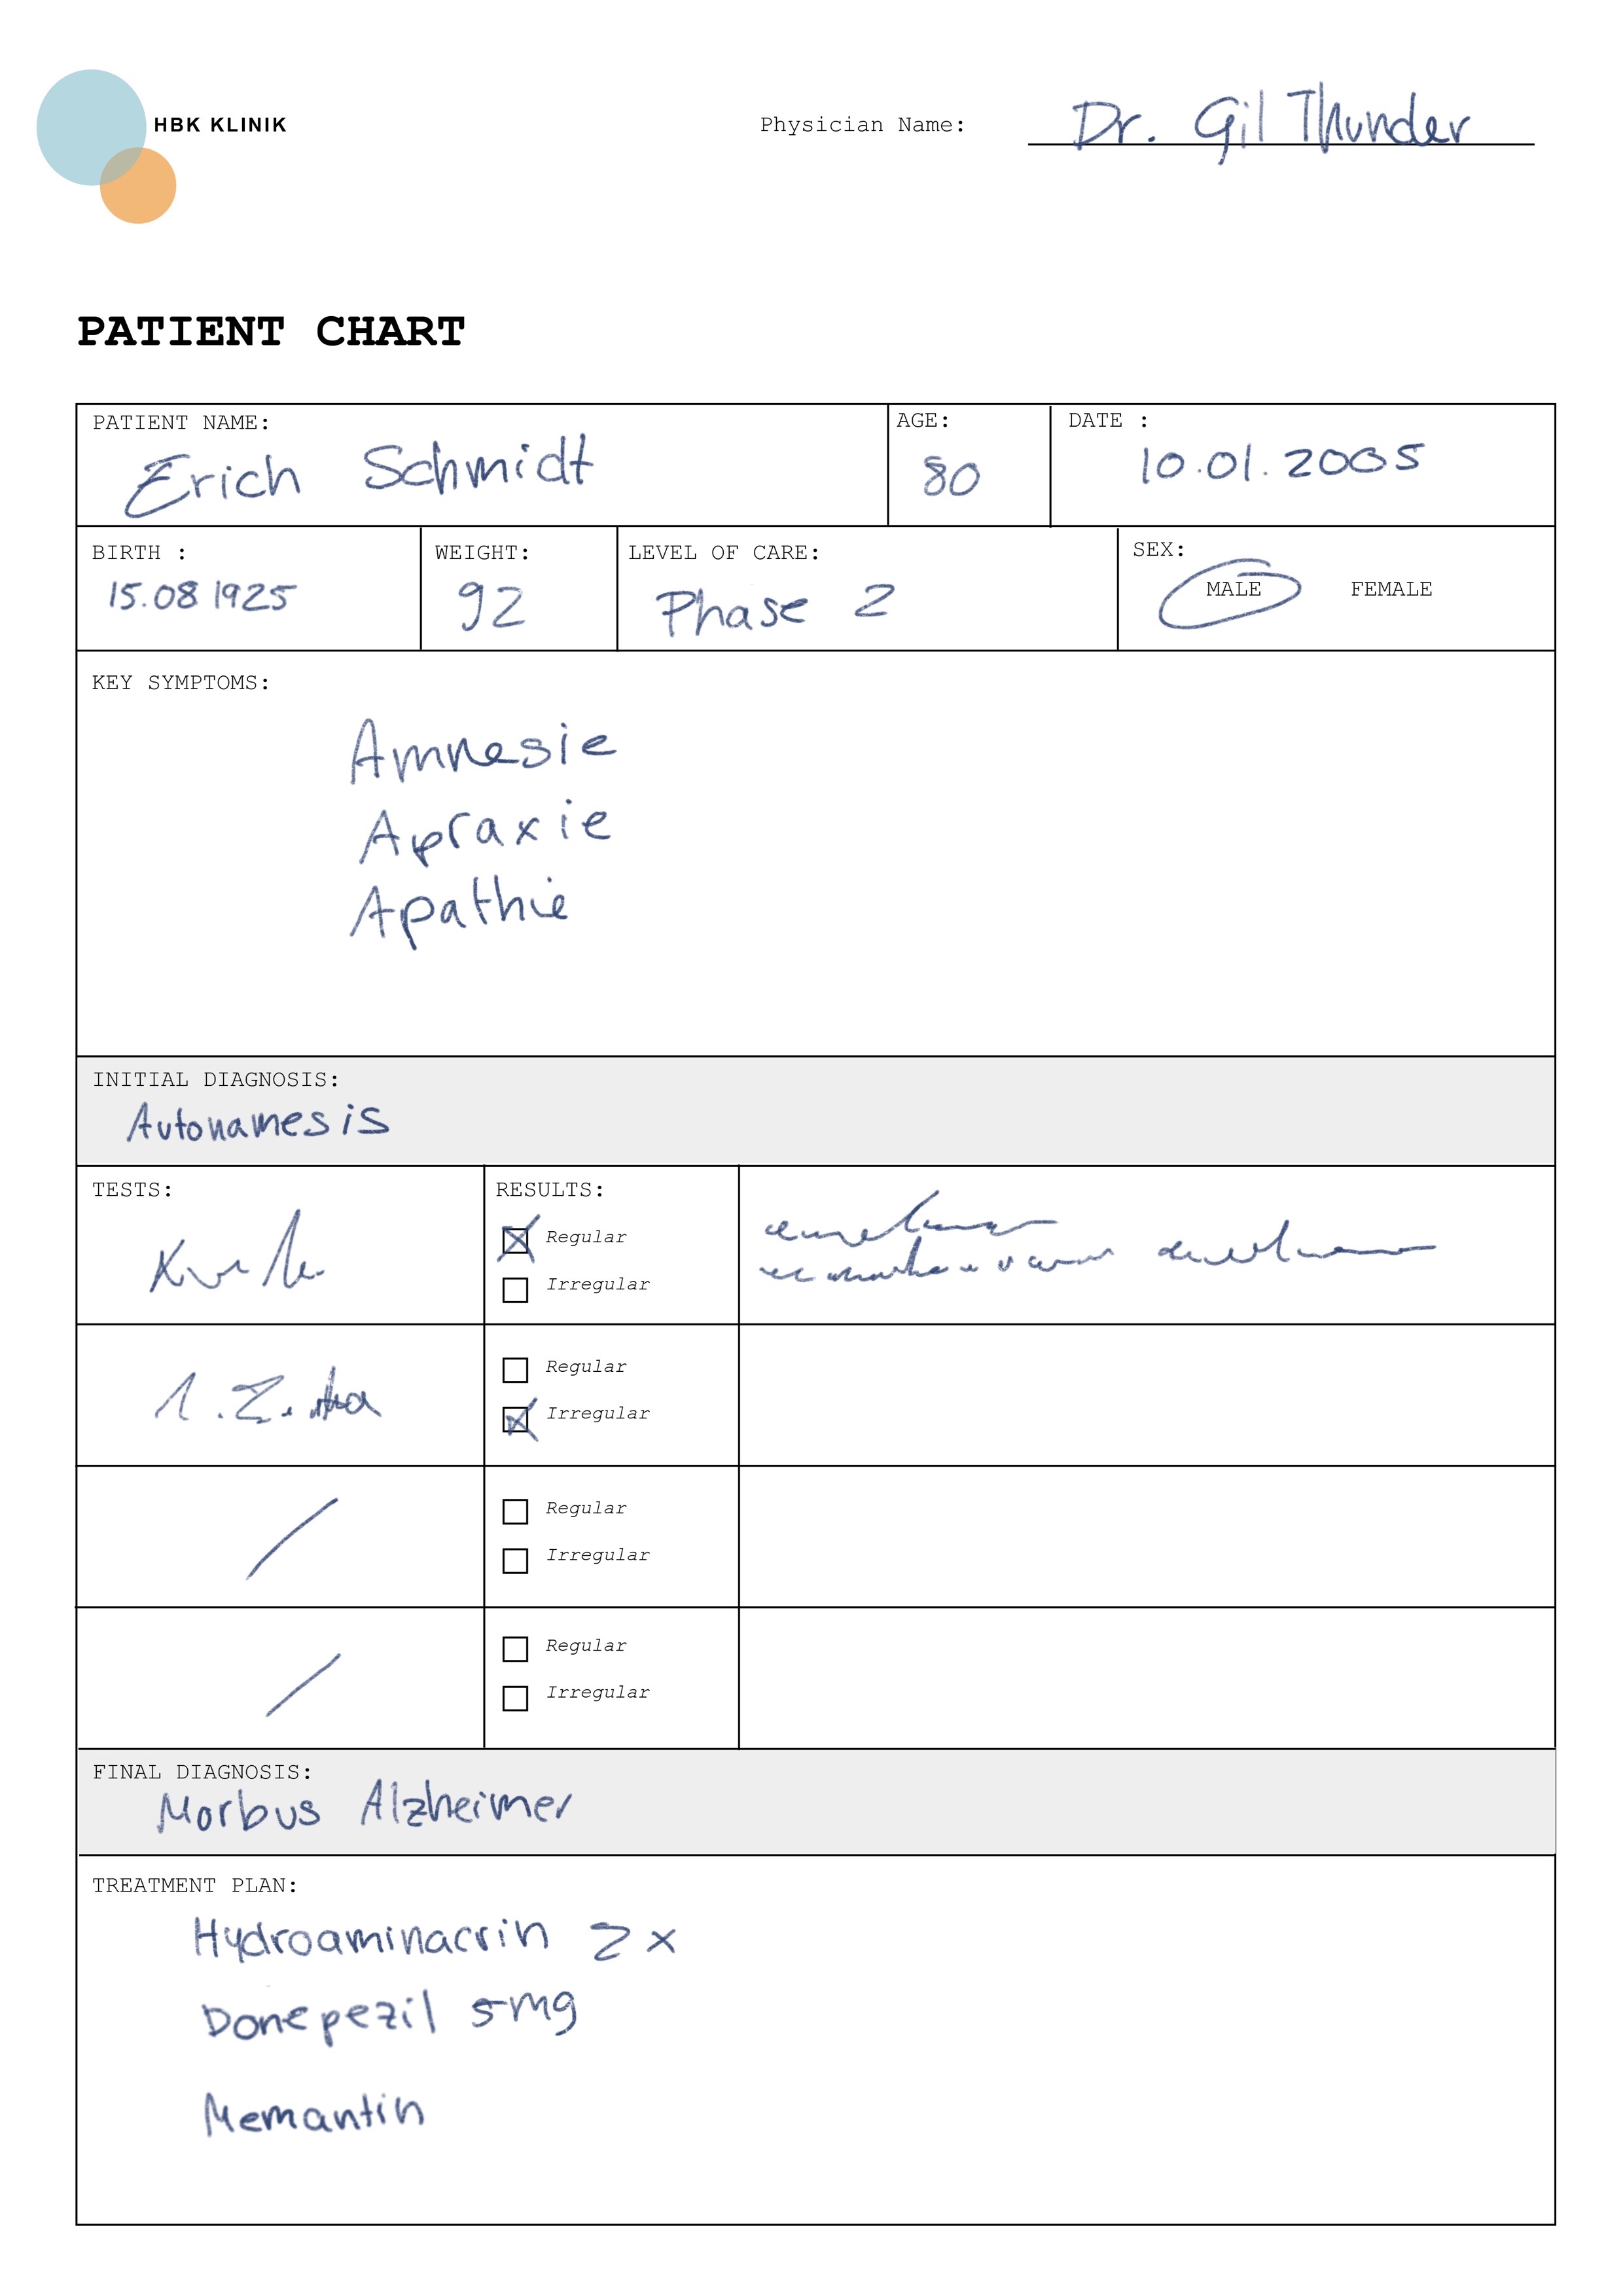 HBK KLINIK
Physician Name: Dr. Gil Thunder
PATIENT CHART
PATIENT NAME: AGE: DATE :
Erich Schmidt 80 10.01.2005
BIRTH : WEIGHT: LEVEL OF CARE: SEX:
15.08 1925 92 Phase 2 MALE FEMALE
KEY SYMPTOMS:
Amnesie
Apraxie
Apathie
INITIAL DIAGNOSIS:
Autonamesis
TESTS: RESULTS:
Regular
Irregular
Regular
Irregular
Regular
Irregular
Regular
Irregular
FINAL DIAGNOSIS:
Morbus Alzheimer
TREATMENT PLAN:
Hydroaminacrin 2x
Donepezil 5mg
Memantin